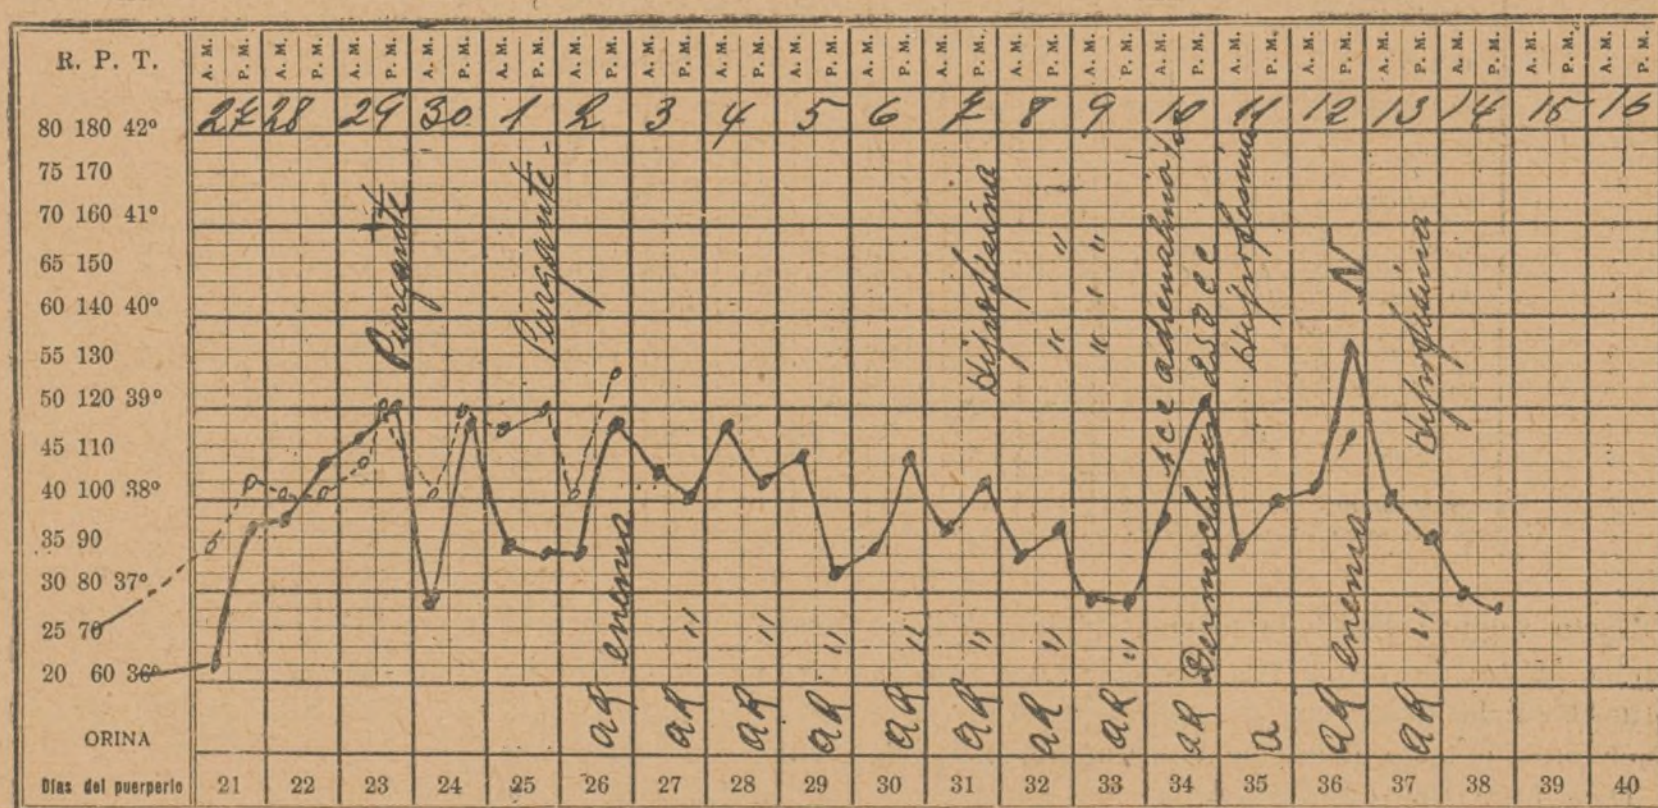 R. P. T. A. M. P. M. A. M. P. M. A. M. P. M. A. M. P. M. A. M. P. M. A. M. P. M. A. M. P. M. A. M. P. M. A. M. P. M. A. M. P. M. A. M. P. M. A. M. P. M. A. M. P. M. A. M. P. M. A. M. P. M. A. M. P. M. A. M. P. M. A. M. P. M. A. M. P. M. A. M. P. M.
27 28 29 30 1 2 3 4 5 6 7 8 9 10 11 12 13 14 15 16
80 180 42°
75 170
70 160 41°
65 150
60 140 40°
55 130
50 120 39°
45 110
40 100 38°
35 90
30 80 37°
25 70
20 60 36°
Purgante
Purgante
enema " " " " " " "
Hipofisina " " " "
1 c c adrenalina
250 c c
Hipofisina
N
enema "
Hipofisina
ORINA aR aR aR aR aR aR aR aR aR a aR aR
Días del puerperio 21 22 23 24 25 26 27 28 29 30 31 32 33 34 35 36 37 38 39 40